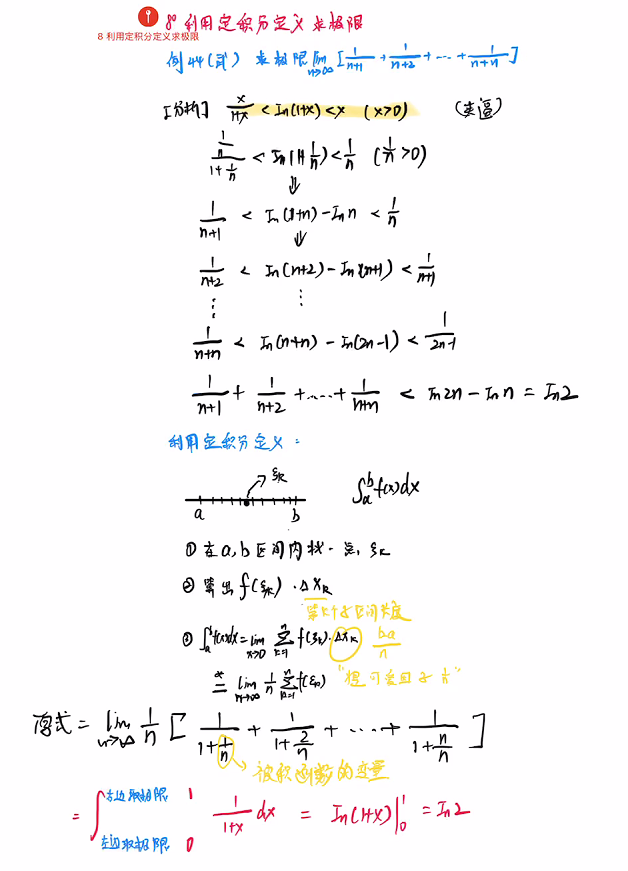 8° 利用定积分定义求极限
8 利用定积分定义求极限
例44(试) 求极限 lim n→∞ [1/(n+1) + 1/(n+2) + … + 1/(n+n)]
[分析] x/(1+x) < ln(1+x) < x (x>0) (夹逼)
(1/n)/(1+1/n) < ln(1+1/n) < 1/n (1/n>0)
⇓
1/(n+1) < ln(1+n) - ln n < 1/n
⇓
1/(n+2) < ln(n+2) - ln(n+1) < 1/(n+1)
⋮ ⋮
1/(n+n) < ln(n+n) - ln(2n-1) < 1/(2n-1)
1/(n+1) + 1/(n+2) + …… + 1/(n+n) < ln2n - ln n = ln2
利用定积分定义:
ξk
a b
∫ₐᵇ f(x)dx
① 在a,b区间内找一点, ξk
② 算出f(ξk)·Δxk
第k个子区间长度
③ ∫ₐᵇ f(x)dx = lim λ→0 Σ k=1 n f(ξk)·Δxk (b-a)/n
= lim n→∞ 1/n Σ k=1 n f(ξk) "提可爱因子 1/n"
原式 = lim n→∞ 1/n [1/(1+1/n) + 1/(1+2/n) + …… + 1/(1+n/n)]
被积函数的变量
右边取极限 1
= ∫ 1/(1+x) dx = ln(1+x)|₀¹ = ln2
左边取极限 0